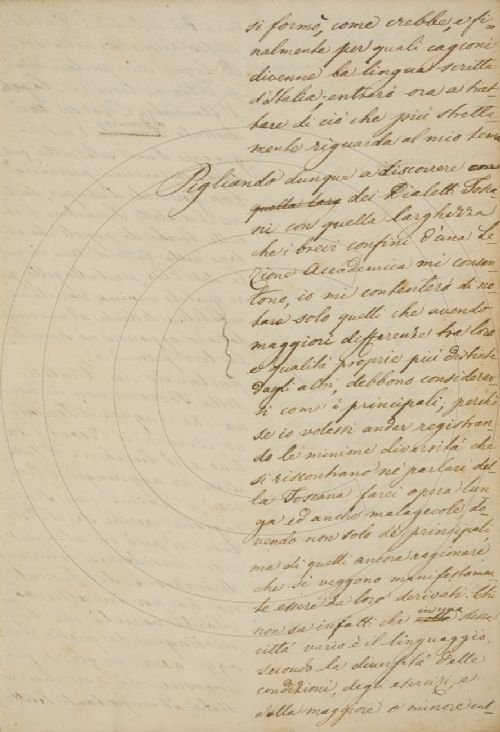 si formò, come crebbe, e fi=
nalmente per quali cagioni
divenne la lingua scritta
d'Italia. entrerò ora a trat
tare di ciò che più stretta
mente riguarda al mio tema
Pigliando dunque a discorrere con
quella larg dei Dialetti Tosca
ni con quella larghezza
che i brevi confini d'una Le
zione Accademica mi conson
tono, io mi contenterò di no=
tare solo quelli che avendo
maggiori differenze tra loro
e qualità proprie più distinte
dagli altri, debbono considerar=
si come i principali; perchè
se io volessi andar registran=
do le minime diversità che
si riscontrano ne' parlari del=
la Toscana farei opera lun=
ga ed anche malagevole do=
vendo non solo de' principali,
ma di quelli ancora ragionare
che si veggono manifestamen
te essere da loro derivati. Chi
non sa infatti che in una stessa
città vario è il linguaggio,
secondo la diversità delle
condizioni, degli esercizi, e
della maggiore o minore cul=